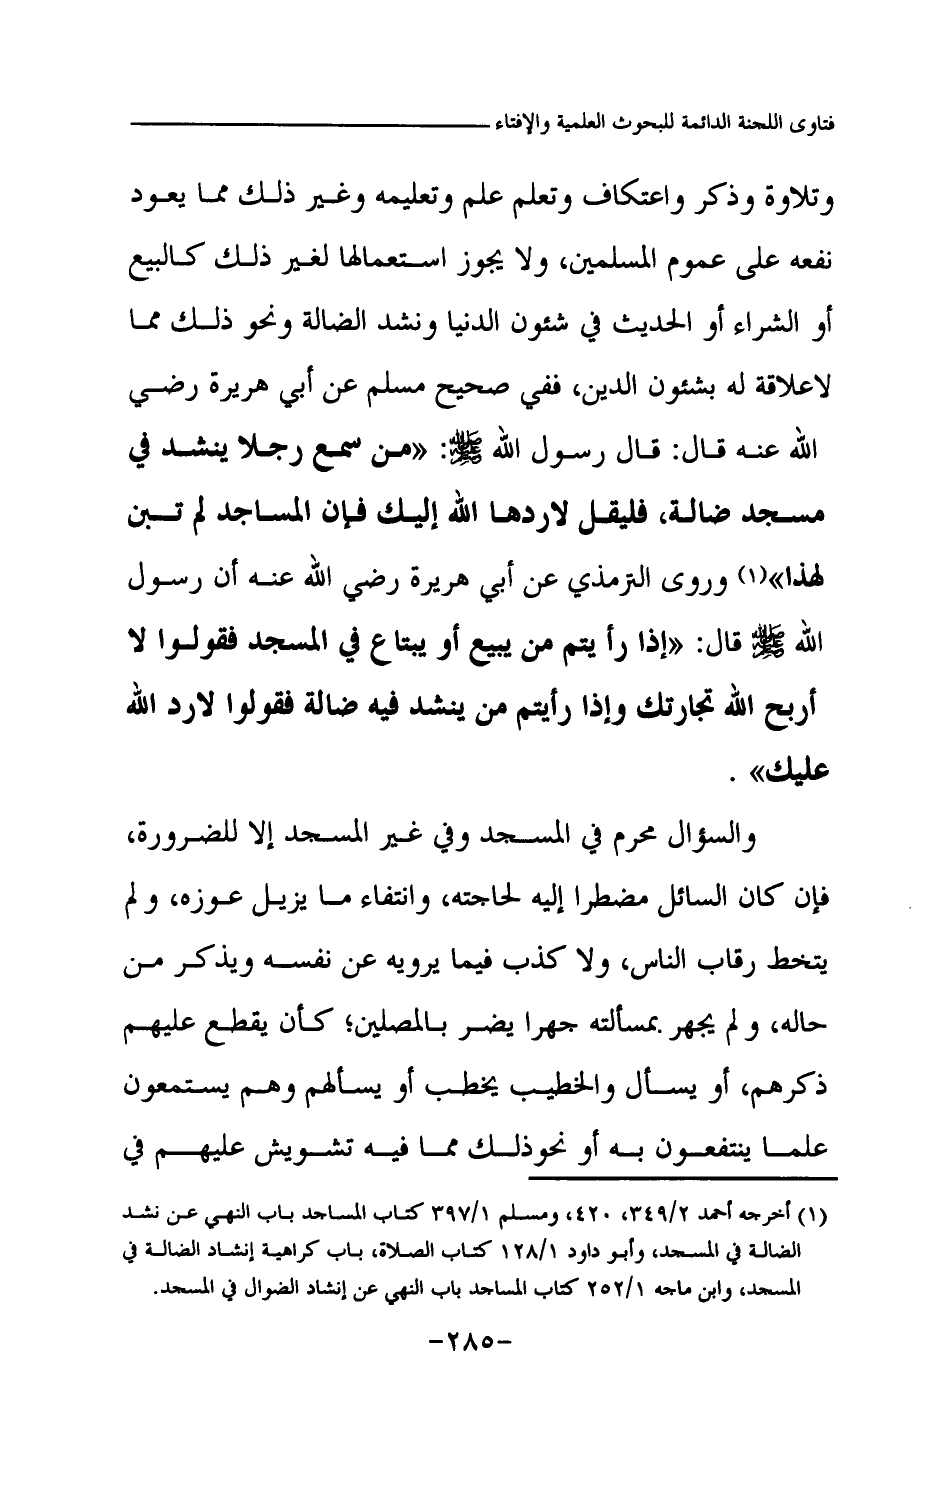 فتاوى اللجنة الدائمة للبحوث العلمية والإفتاء
وتلاوة وذكر واعتكاف وتعلم علم وتعليمه وغير ذلك مما يعود
نفعه على عموم المسلمين، ولا يجوز استعمالها لغير ذلك كالبيع
أو الشراء أو الحديث في شئون الدنيا ونشد الضالة ونحو ذلك مما
لاعلاقة له بشئون الدين، ففي صحيح مسلم عن أبي هريرة رضي
الله عنه قال: قال رسول الله ﷺ: «من سمع رجلا ينشد في
مسجد ضالة، فليقل لاردها الله إليك فإن المساجد لم تبن
لهذا»(١) وروى الترمذي عن أبي هريرة رضي الله عنه أن رسول
الله ﷺ قال: «إذا رأ يتم من يبيع أو يبتاع في المسجد فقولوا لا
أربح الله تجارتك وإذا رأيتم من ينشد فيه ضالة فقولوا لارد الله
عليك» .
والسؤال محرم في المسجد وفي غير المسجد إلا للضرورة،
فإن كان السائل مضطرا إليه لحاجته، وانتفاء ما يزيل عوزه، و لم
يتخط رقاب الناس، ولا كذب فيما يرويه عن نفسه ويذكر من
حاله، و لم يجهر بمسألته جهرا يضر بالمصلين؛ كأن يقطع عليهم
ذكرهم، أو يسأل والخطيب يخطب أو يسألهم وهم يستمعون
علما ينتفعون به أو نحوذلك مما فيه تشويش عليهم في
(١) أخرجه أحمد ٣٤٩/٢، ٤٢٠، ومسلم ٣٩٧/١ كتاب المساجد باب النهي عن نشد
الضالة في المسجد، وأبو داود ١٢٨/١ كتاب الصلاة، باب كراهية إنشاد الضالة في
المسجد، وابن ماجه ٢٥٢/١ كتاب المساجد باب النهي عن إنشاد الضوال في المسجد.
-٢٨٥-